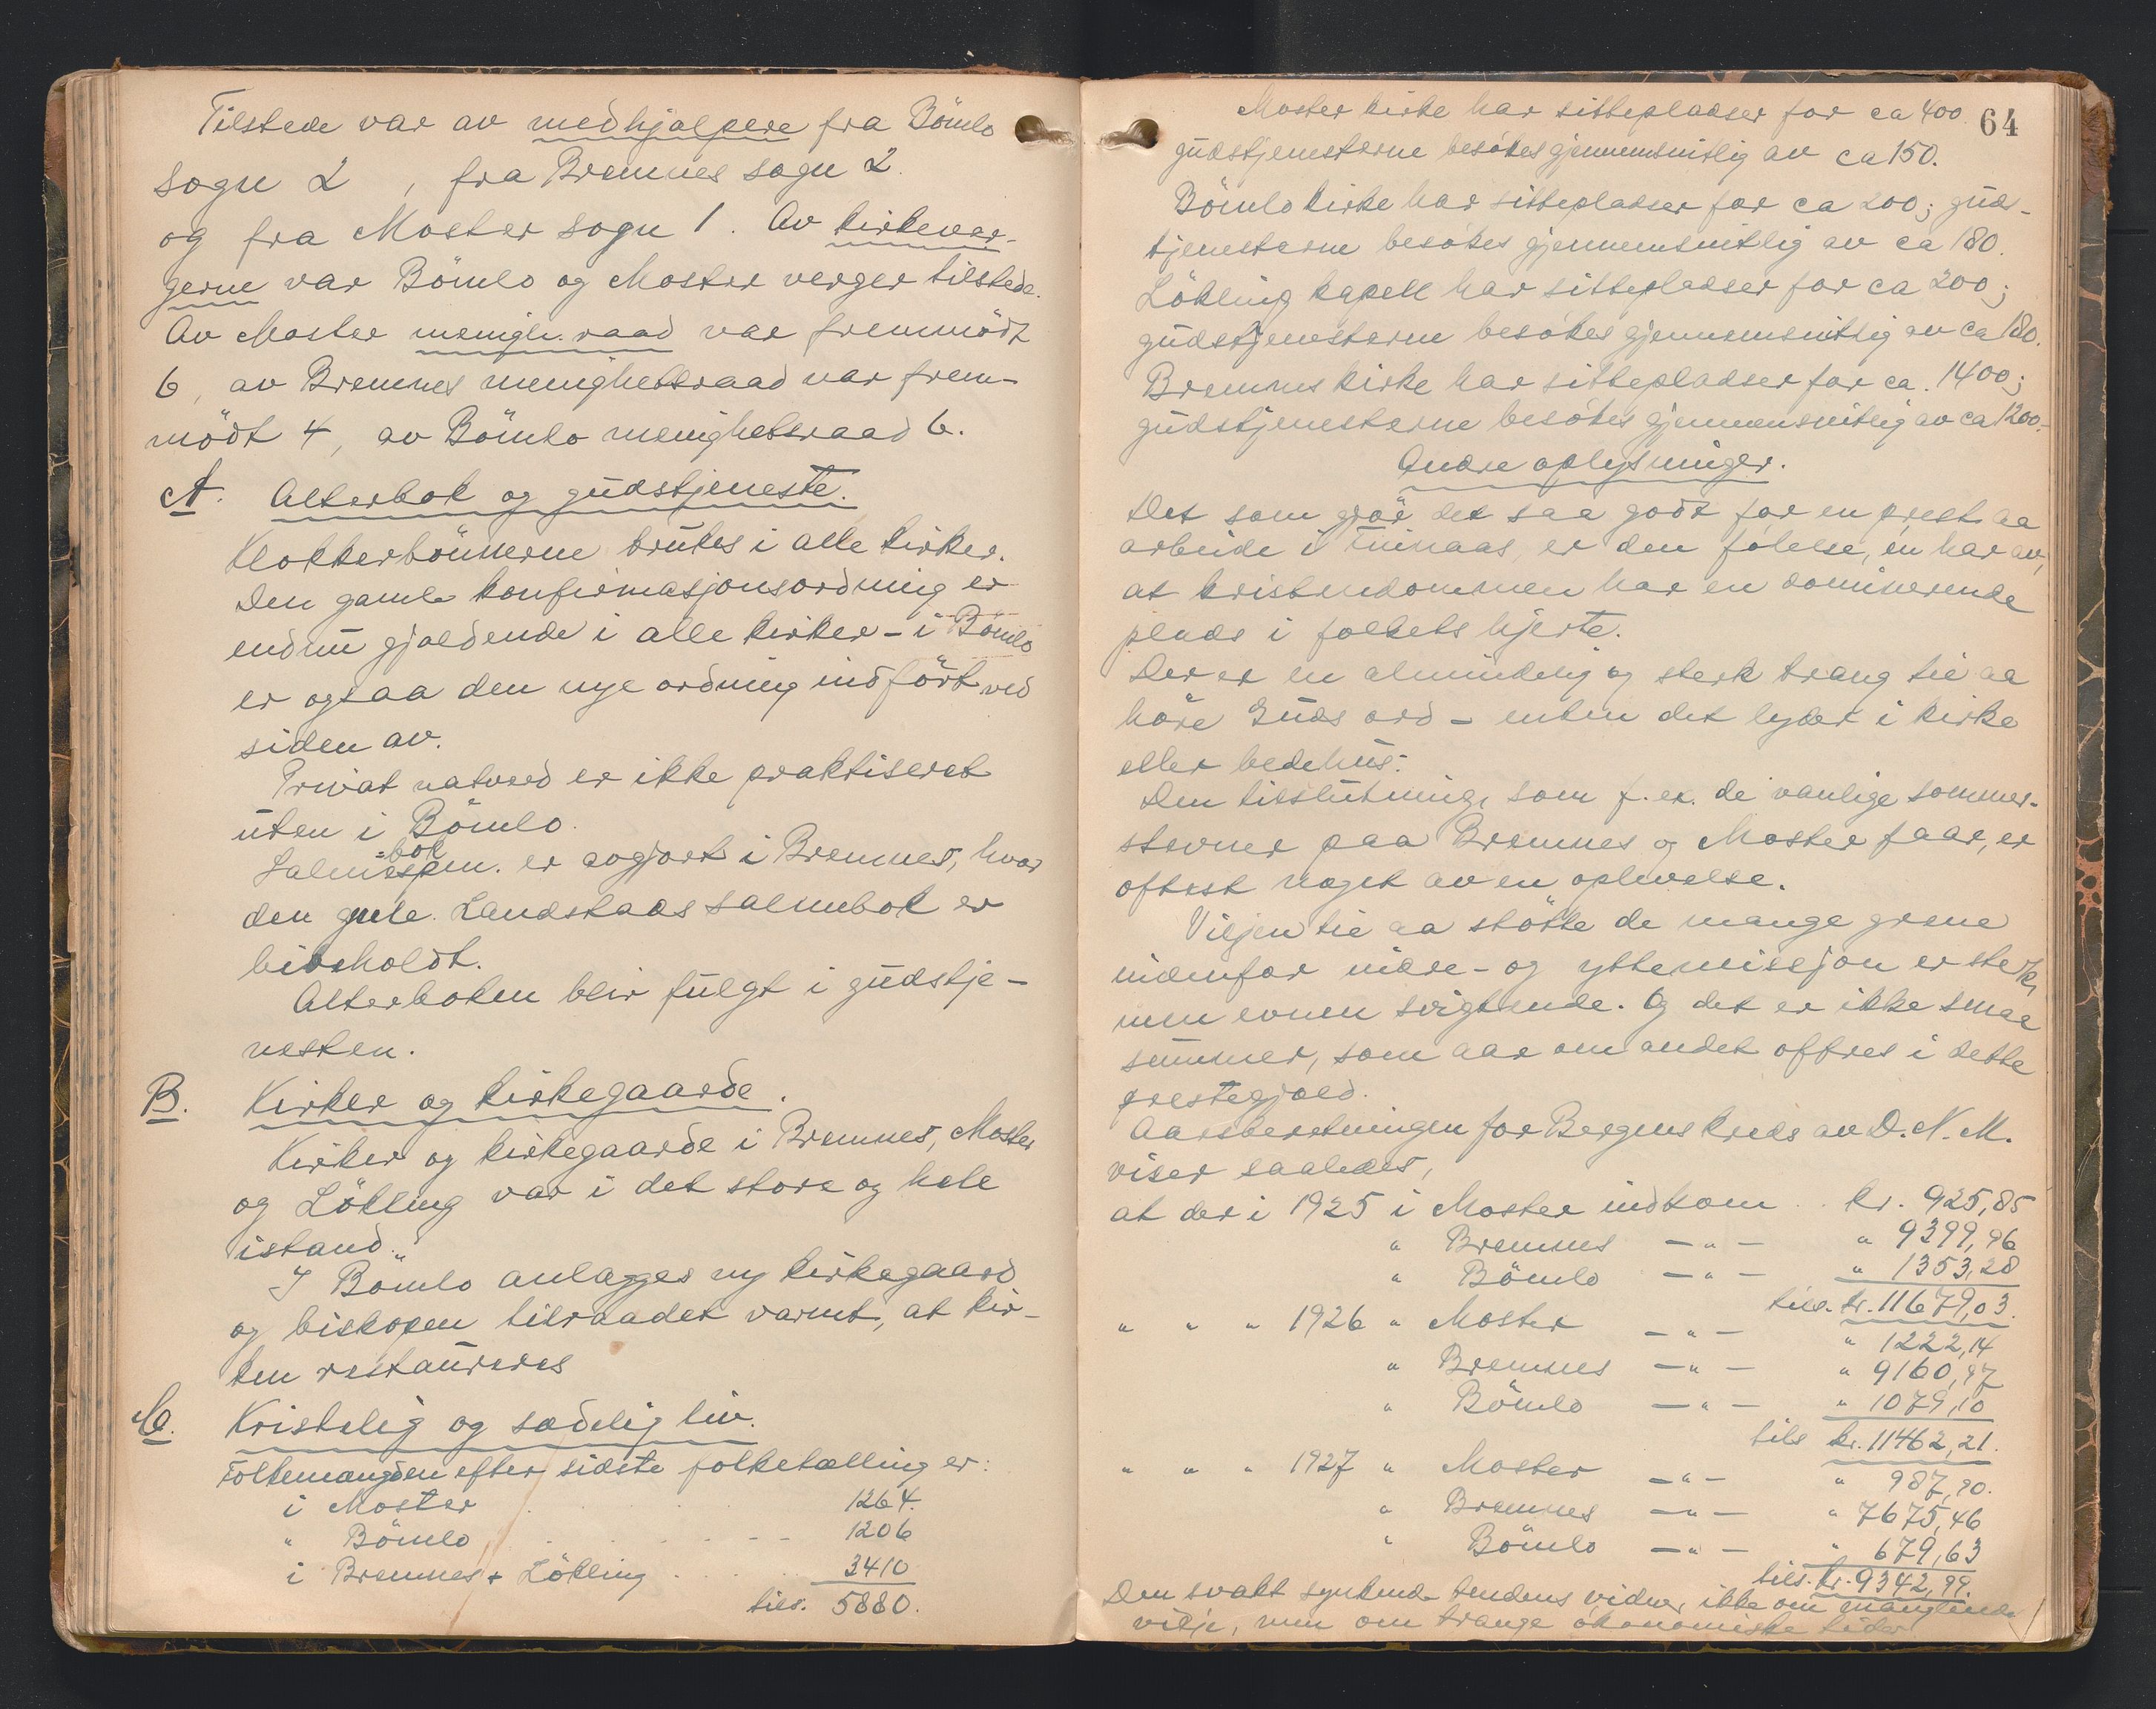 Tilstede var av medhjælpere fra Bömlo
sogn 2 , fra Bremnes sogn 2.
og fra Moster sogn 1. Av kirkever-
gerne var Bömlo og Moster verger tilstede.
Av Moster menigh. raad var fremmödt
6, av Bremnes menighetsraad var frem-
mödt 4, av Bömlo menighetsraad 6.
A. Alterbok og gudstjeneste.
Klokkerbönnerne brukes i alle kirker.
Den gamle konfirmasjonsordning er
endnu gjældende i alle kirker - i Bömlo
er ogsaa den nye ordning indfört ved
siden av.
Privat natverd er ikke praktiseret
uten i Bömlo.
=bok
Salmespm. er avgjort i Bremnes, hvor
den gule Landstads salmebok er
bibeholdt.
Alterboken blir fulgt i gudstje-
nesten.
B. Kirker og kirkegaarde.
Kirker og kirkegaarde i Bremnes, Moster
og Lökling var i det store og hele
istand.
I Bömlo anlægges ny kirkegaard
og biskopen tilraadet varmt, at kir-
ken restaureres
C. Kristelig og sædelig liv.
Folkemængden efter sidste folketælling er:
i Moster . . . . 1264.
" Bömlo . . . . 1206
i Bremnes + Lökling . . . . 3410
tils. 5880.
64
Moster kirke har sittepladser for ca 400
gudstjenesterne besökes gjennemsnitlig av ca 150.
Bömlo kirke har sittepladser for ca 200; guds-
tjenesterne besökes gjennemsnitlig av ca 180.
Lökling kapell har sittepladser for ca 200;
gudstjenesterne besökes gjennemsnitlig av ca 180.
Bremnes kirke har sittepladser for ca. 1400;
gudstjenesterne besökes gjennemsnitlig av ca 1200.
Andre oplysninger.
Det som gjör det saa godt for en prest aa
arbeide i Finnaas, er den fölelse, en har av,
at kristendommen har en dominerende
plads i folkets hjerte.
Der er en almindelig og sterk trang til aa
höre Guds ord - enten det lyder i kirke
eller bedehus.
Den tilslutning, som f. ex. de vanlige sommer-
stevner paa Bremnes og Moster faar, er
oftest noget av en oplevelse.
Viljen til aa stötte de mange grene
indenfor indre- og yttermissjon er sterk,
men evnen svigtende. Og det er ikke smaa
summer, som aar om andet offres i dette
prestegjæld.
Aarsberetningen for Bergens kreds av D. N. M.
viser saaledes,
at der i 1925 i Moster indkom . . kr. 925,85
" Bremnes — " — " 9399,96
" Bömlo — " — " 1353,20
tils. kr. 11679,03.
" " " 1926 " Moster — " — " 1222,14
" Bremnes — " — " 9160,97
" Bömlo — " — " 1079,10
tils kr. 11462,21.
" " " 1927 " Moster — " — " 987,90.
" Bremnes — " — " 7675,46
" Bömlo — " — " 679,63
tils. kr. 9342,99.
Den svakt synkende tendens vidner ikke om manglende
vilje, men om trange ökonomiske tider.